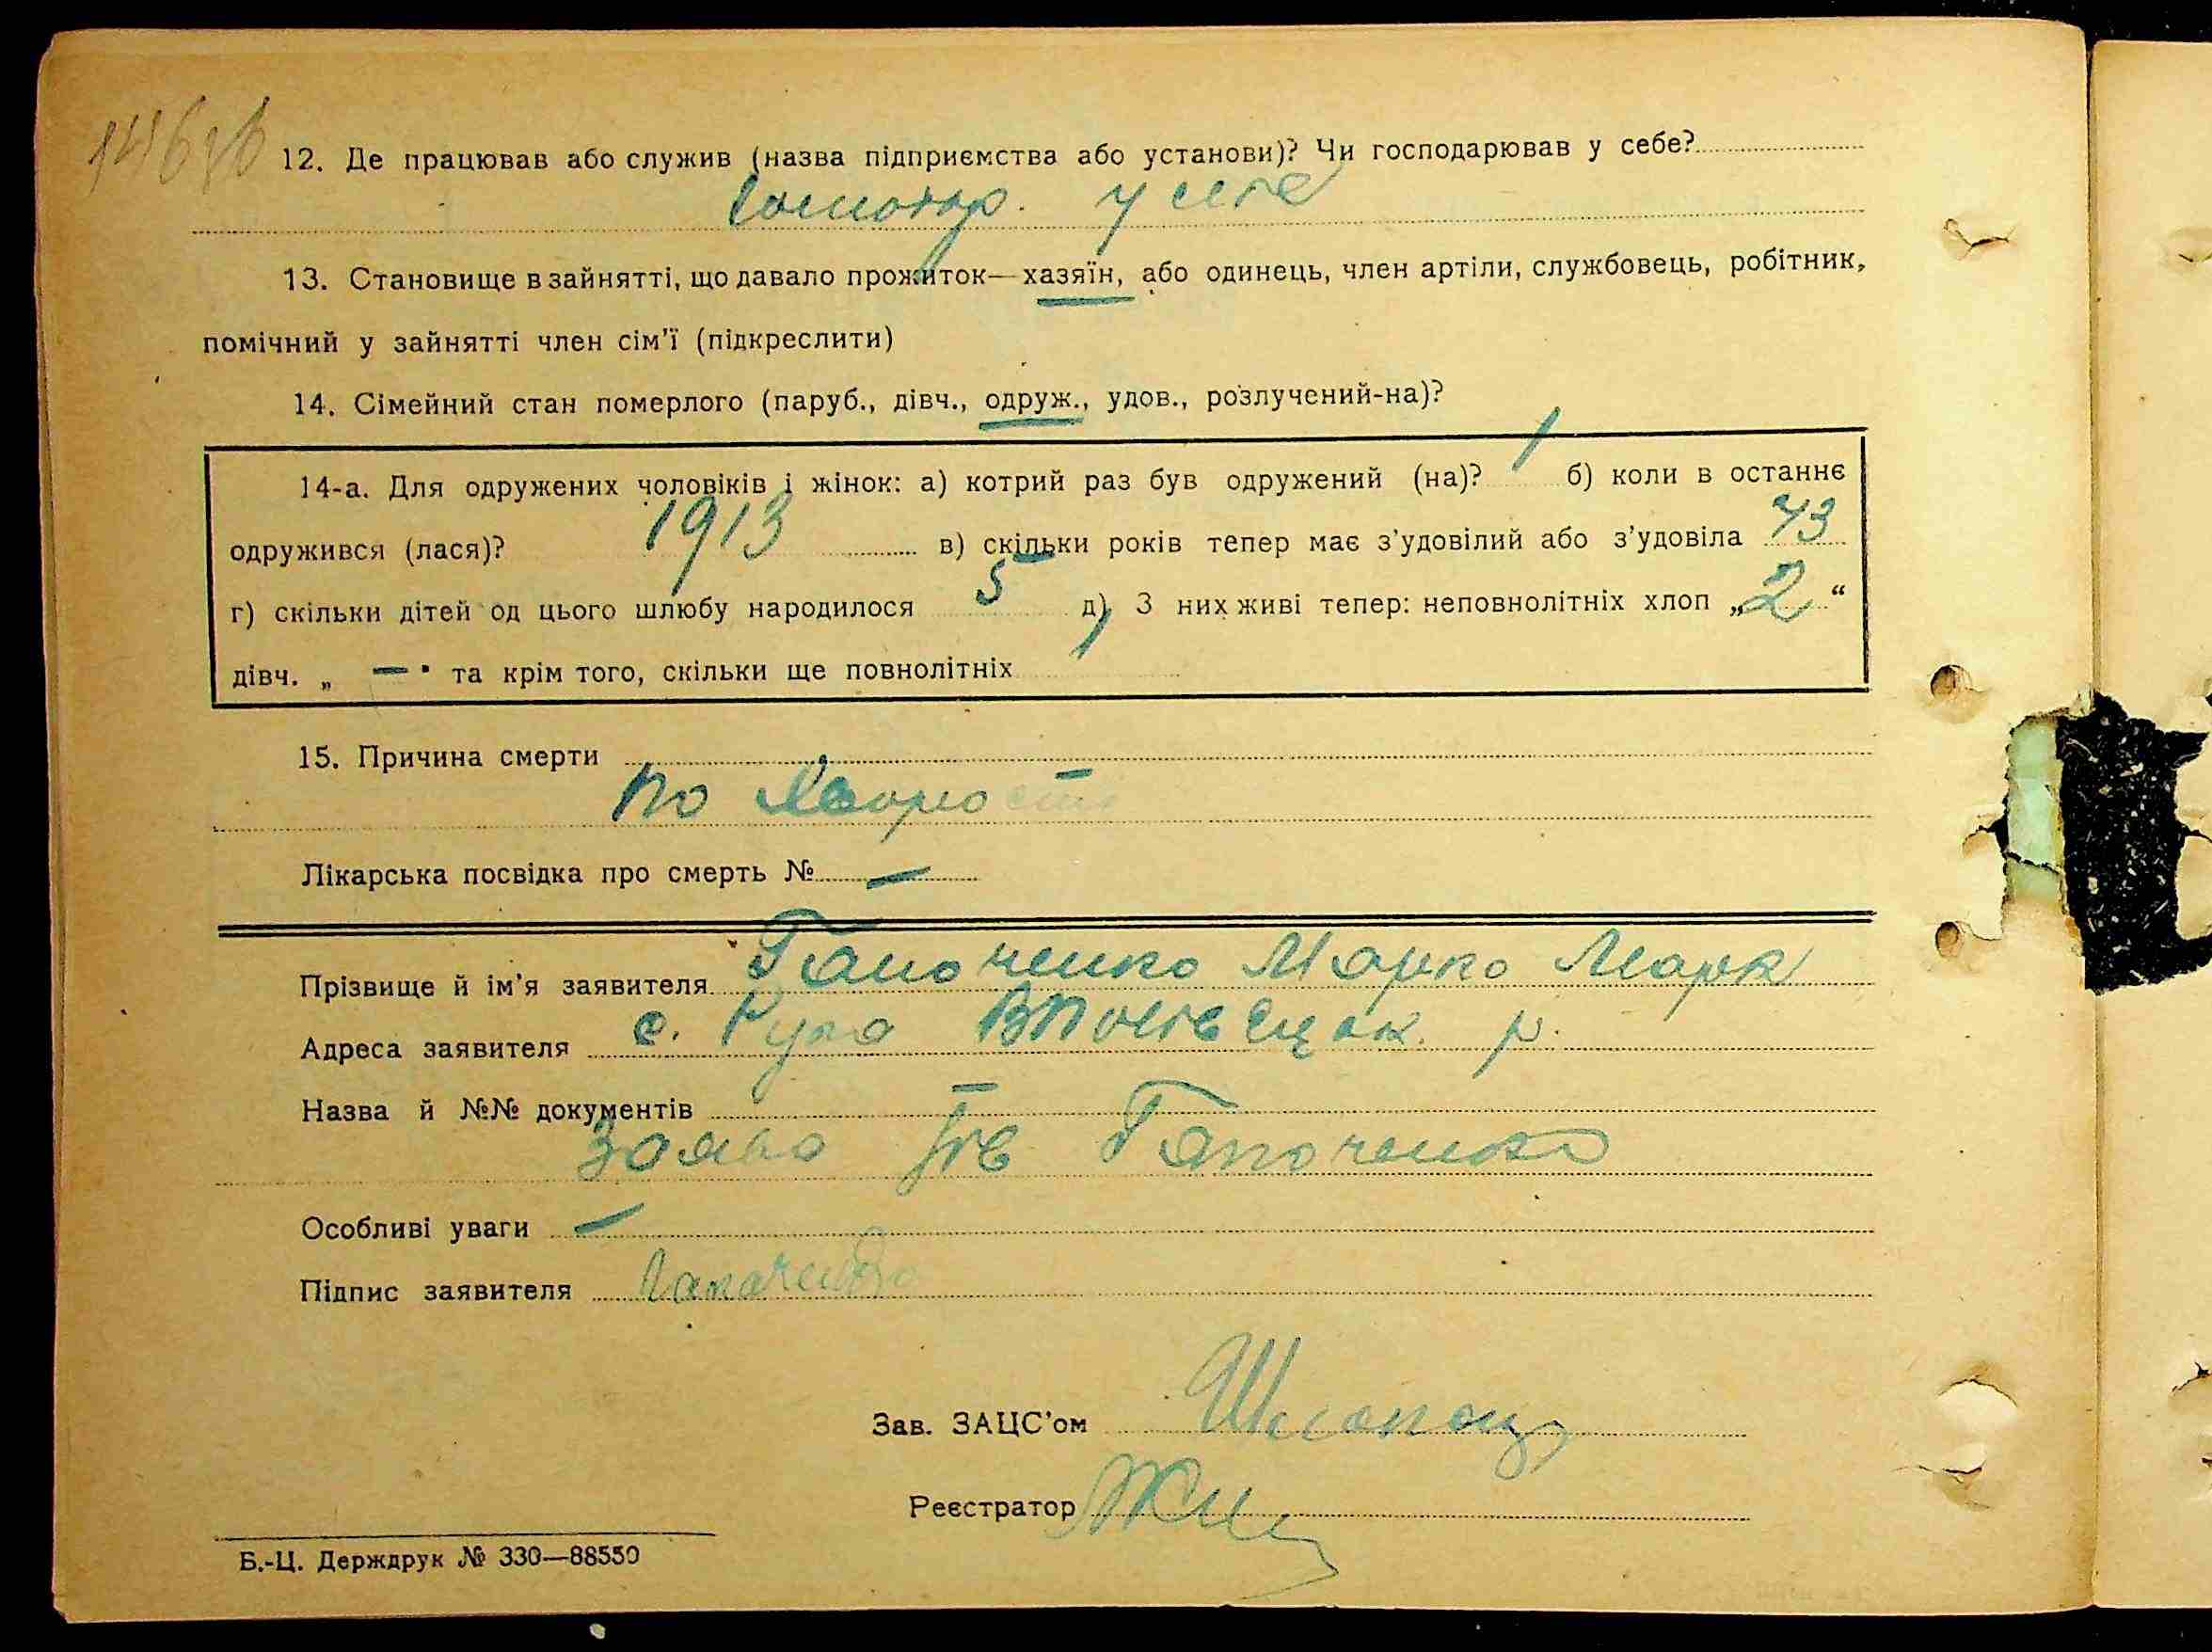 146зв
12. Де працював або служив (назва підприємства або установи)? Чи господарював у себе?
Господар. у себе
13. Становище в зайнятті, що давало прожиток—хазяїн, або одинець, член артіли, службовець, робітник,
помічний у зайнятті член сім'ї (підкреслити)
14. Сімейний стан померлого (паруб., дівч., одруж., удов., розлучений-на)?
14-а. Для одружених чоловіків і жінок: а) котрий раз був одружений (на)? 1 б) коли в останнє
одружився (лася)? 1913 в) скільки років тепер має з'удовілий або з'удовіла 43
г) скільки дітей од цього шлюбу народилося 5 д) З них живі тепер: неповнолітніх хлоп „2“
дівч. „ — " та крім того, скільки ще повнолітніх 1
15. Причина смерти
по
Лікарська посвідка про смерть № —
Прізвище й ім'я заявителя Гапоченко Марко Марк
Адреса заявителя с. р.
Назва й №№ документів
Заява Гапоченко
Особливі уваги —
Підпис заявителя Гапоченко
Зав. ЗАЦС'ом
Реєстратор
Б.-Ц. Держдрук № 330—88550